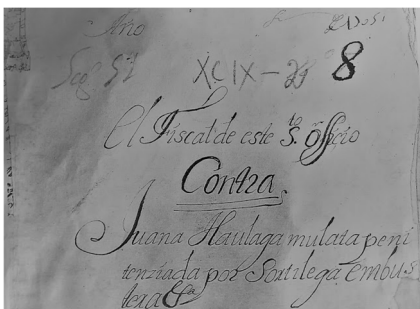 Año
XCIX - 8
El Fiscal de este S.to offiçio
Contra.
Juana Haulaga mulata peni
tenziada por Sortilega embus
tera &a